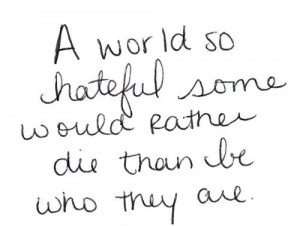 A world so
hateful some
would rather
die than be
who they are.